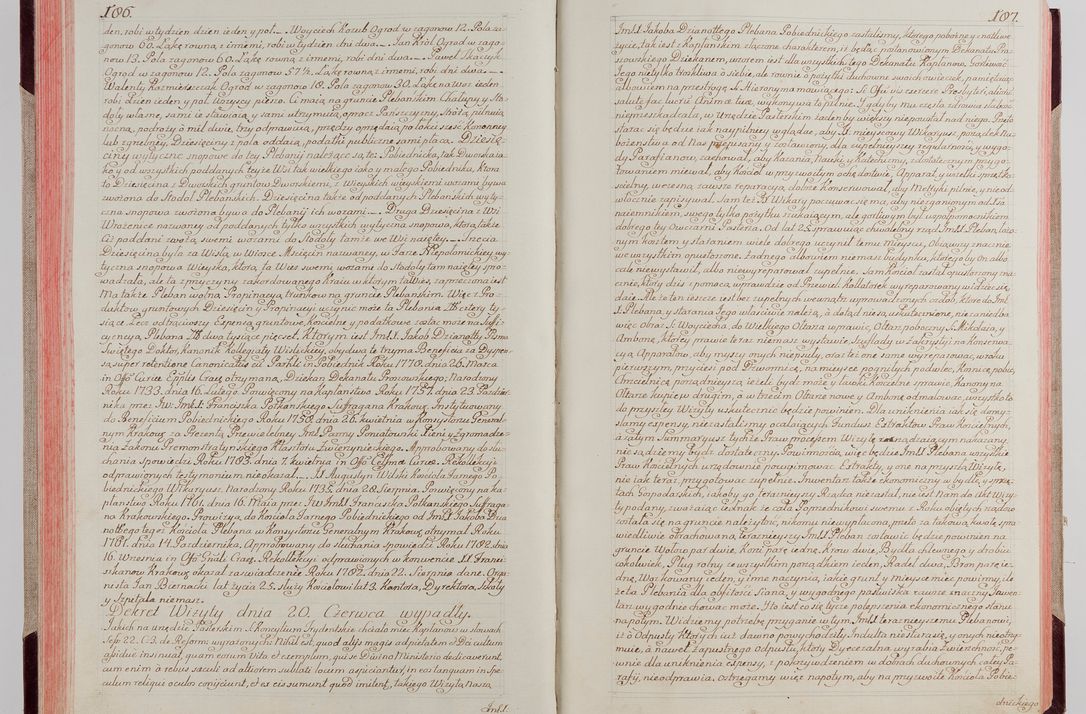 186.
den, robi w tydzień dzień ieden y poł. Woyciech Kozub Ogrod w zagonow 12. Pola za-
gonow 60. Łąkę rowną z innemi, robi w tydzień dni dwa. Jan Krol Ogrod w zago-
now 13. Pola zagonow 60. Łąkę rowną z innemi, robi dni dwa. Paweł Skaczyk
Ogrod w zagonow 12. Pola zagonow 57½. Łąkę rowną z innemi, robi dni dwa.
Walenty Kazmierszczak Ogrod w zagonow 18. Pola zagonow 30. Łąkę na woz ieden
robi dzień ieden y poł. Wszyscy pieszo. Ci maią na gruncie Plebańskim Chałupy y Sto-
doły własne, sami ie stawiaią y sami utrzymuią, oprocz Panszczyzny, Stróżą pilnuią
nocną, podroży o mil dwie, trzy odprawuią, przędzy oprzędaią po łokci sześć Konopney
lub zgrzebney, Dziesięciny z pola oddaią, podatki publiczne sami płacą. Dziesię-
ciny wytyczne snopowe do tey Plebanii należące są, te: Pobiednicka, tak Dworska ia-
ko y od wszystkich poddanych teyże Wsi tak wielkiego iako y małego Pobiednika, Ktora
to Dziesięcina z Dworskich gruntow Dworskiemi, z Wieyskich wieyskiemi wozami bywa
zwożona do Stodoł Plebańskich. Dziesięcina także od poddanych Plebańskich wyty-
czna snopowa zwożona bywa do Plebanii ich wozami. Druga Dziesięcina z Wsi
Wrożenice nazwaney od poddanych tylko wszystkich wytyczna snopowa, ktorą także
Ci poddani zwożą swemi wozami do Stodoły tamże we Wsi naiętey. Trzecia
Dziesięcina była za Wisłą, w Wiosce Mięcin nazwaney, w Parze Niepołomickiey wy-
tyczna snopowa Wieyska, ktorą ta Wieś swemi wozami do Stodoły tam naiętey spro-
wadzała, ale ta z przyczyny zakordowanego Kraiu w ktorym ta Wieś, zaprzeczona iest
Ma także Pleban wolną Propinacyą trunkow na gruncie Plebańskim. Więc z Pro-
duktow gruntowych Dziesięcin y Propinacyi uczynić może ta Plebania Złł cztery ty-
siące. Lecz odtrąciwszy Expensa gruntowe, Kościelne y podatkowe zostać może na Suffi-
cyencyą Plebana Złł dwa tysiące pięcset. Ktorym iest JmX. Jakob Dzianotty Pisma
Swiętego Doktor, Kanonik Kollegiaty Wislickiey, obydwa te trzyma Beneficia za Dyspen-
są super retentione Canonicatus cu Parchli in Pobiednik Roku 1770. dnia 26. Marca
in Offo Curiæ Epplis Crac. otrzymaną, Dziekan Dekanatu Proszowskiego: Narodzony
Roku 1733. dnia 16. Lutego. Powięcony na Kapłanstwo Roku 1757. dnia 23. Paździer-
nika prze: Jw: JmX. Franciszka Potkańskiego Suffragana Krakows: Instytuowany
do Beneficium Pobiednickiego Roku 1758. dnia 26. Kwietnia w Konsystorzu General-
nym Krakows: za Prezentą Przewielebney JmP. Panny Poniatowski Xieni y Zgromadze-
nia Zakonu Premonstrateńskiego Klasztoru Zwierzynieckiego. Approbowany do słu-
chania spowiedzi Roku 1783. dnia 7. Kwietnia in Offo Celsmæ Curiæ. Rekollekcyi
odprawionych testymonium nieokazał. X. Augustyn Wilski Kościoła Farnego Po-
biednickiego Wikaryusz. Narodzony Roku 1735. dnia 28. Sierpnia. Powięcony na ka-
płanstwo Roku 1761. dnia 16. Maia prze: Jw JmX. Franciszka Potkańskiego Suffraga-
na Krakowskiego. Prowizyą do Kościoła Farnego Pobiednickiego od JmX. Jakoba Dzia-
nottego tegoż Kościoła Plebana w Konsystorzu Generalnym Krakows: otrzymał Roku
1761. dnia 14. Października. Approbowany do słuchania spowiedzi Roku 1782. dnia
16. Września in Offo Gnali Crac. Rekollekcyi odprawionych w konwencie XX. Franci-
szkanow Krakows: okazał zaswiadczenie Roku 1782. dnia 22. Sierpnia dane. Orga-
nista Jan Biernacki lat życia 25. służy Kościołowi lat 3. Kantora, Dyrektora, Szkoły
y Szpitala niemasz.
Dekret Wizyty dnia 20. Czerwca wypadły.
Jakich na urzędzie Pasterskim S. Koncylium Trydentskie chciało mieć Kapłanow w słowach
Sess: 22. C. 3. de Reform: wyrażonych: Nihil est quod alios magis ad pietatem et Dei cultum
assiduè instruat quam eorum vita et exemplum, qui se Divino Ministerio dedicaverunt,
cum enim à rebus sæculi ad altiorem sublati locum aspiciantur, in eos tanquam in spe-
culum reliqui oculos conijciunt, et ex eis sumunt quod imitent, takiego Wizyta Nasza
JmX.
187.
JmX. Jakoba Dzianottego Plebana Pobiednickiego zastalismy, ktorego pobożne y cnotliwe
życie, tak iest z Kapłańskim złączone charakterem, iż będąc postanowionym Dekanatu Pro-
szowskiego Dziekanem, wzorem iest dla wszystkich tego Dekanatu Kapłanow. Gorliwość
Jego nietylko troskliwa o siebie, ale rownie o pożytki duchowne swoich owieczek, pamiętaiąc
albowiem na przestrogę S. Hieronyma mowiącego: Si Offm vis exercere Presbyteri, alior:
salute fac lucrū Animæ tuæ, wykonywa to pilnie. Y gdyby mu częsta zdrowia słabość
nieprzeszkadzała, w Urzędzie Pasterskim żaden by większy niepowstał nad niego. Przeto
starać się będzie iak naypilniey wyglądać, aby X. mieyscowy Wikaryusz, porządek Na-
bożeństwa od Nas przepisany y zostawiony, dla zupełnieyszey regularności, y wygo-
dy Parafianow, zachował, aby Kazania, Nauki, y Katechizmy, z dostatecznym przygo-
towaniem miewał, aby Kościoł w przyzwoitym ochędostwie, Apparat, y wszelki sprzęt Ko-
scielny, wczesną zawsze reparacyą, dobrze konserwował, aby Metryki pilnie, y nieod-
włocznie zapisywał. Sam też X. Wikary poczuwać się ma, aby nie zganionym od JXa
naiemnikiem, swego tylko pożytku szukaiącym, ale gorliwym był wspołpomocnikiem
dobrego tey Owczarni Pasterza. Od lat 25. sprawuiąc chwalebny rząd JmX. Pleban, łożo-
nym kosztem y staraniem wiele dobrego uczynił temu Mieyscu, Obiąwszy znacznie
we wszystkim opustoszone. żadnego albowiem niemasz budynku, ktoregoby On albo
całe niewystawił, albo niewyreparował zupełnie. Sam Kościoł zastał opustoszony zna-
cznie, ktory dziś z pomocą wprawdzie od Przewiel: Kollatorek wyreparowany widzieć się
daie. Ale że ten ieszcze iest bez zupełnych wewnątrz wprowadzonych ozdob, ktore do JmX.
X. Plebana, y starania Jego własciwie należą, à dotąd nie są uskutecznione, nie zaniedba
więc Obraz S. Woyciecha do Wielkiego Ołtarza wprawić, Ołtarz poboczny S. Mikołaia, y
Ambonę, ktorey prawie teraz niemasz wystawić. Szuflady w Zakrystyi na Konserwa-
cyą Apparatow, aby myszy onych niepsuły, oraz też one same wyreparować, wroku
pierwszym, przyciesi pod Dzwonnicą, na mieysce pognitych podwlec, Kośnicę pobić,
Chrzcielnicę porządnieyszą ieżeli być może y ławki Kościelne sprawić. Kanony na
Ołtarze kupić w drugim, à w trzecim Ołtarze nowe y Ambonę odmalować, wszystko to
do przyszłey Wizyty uskutecznić będzie powinien. Dla uniknienia iak się domy-
slamy expensy, nie zastalismy ocalaiących Fundusz Extraktow Praw Kościelnych,
a zatym Summaryusz tychże Praw procesem Wizytę zarządzaiącym nakazany,
nie sądziemy bydź dostateczny. Powinnością więc będzie JmX. Plebana wszystkie
Praw Kościelnych urzędownie powyimować Extrakty, y one na przyszłą Wizytę
nie iak teraz przygotować zupełnie. Inwentarz także ekonomiczny w bydle, y sprzę-
tach Gospodarskich, iakoby go teraznieyszy Rządca niezastał, nie iest Nam do Akt Wizy-
ty podany, zważaiąc iednak że cała Poprzednikowi swemu z Roku obiętych rządow
została się na gruncie należytość, nikomu niewypłacona, przeto za takową kwotę spra-
wiedliwie obrachowaną, teraznieyszy JmX. Pleban zostawić będzie powinien na
gruncie Wołow par dwie, Koni parę iedną, Krow dwie, Bydła chlewnego y drobiu
cokolwiek, Pług rolny ze wszystkim porządkiem ieden, Radeł dwa, Bron parę ie-
dną, Woz kowany ieden, y inne naczynia, iakie grunt y mieysce mieć powinny, le-
żeli Plebania dla obfitości Siana, y wygodnego pastwiska zawsze znaczny Jnwen-
tarz wygodnie chować może. To iest co się tycze polepszenia ekonomicznego stanu
na potym. Widziemy potrzebę przyganić w tym JmX. teraznieyszemu Plebanowi,
iż o Odpusty, Ktorych iuż dawno powychodziły Indulta nie stara się, y onych nieotrzy-
muie, a nawet Zapustnego Odpustu, ktory Dyecezalna wyrabia Zwierzchność, pe-
wnie dla uniknienia expensy, z pokrzywdzeniem w dobrach duchownych całey Pa-
rafij, nieodprawia, ostrzegamy więc napotym, aby na przyzwoite Kościoła Pobie-
dnickiego